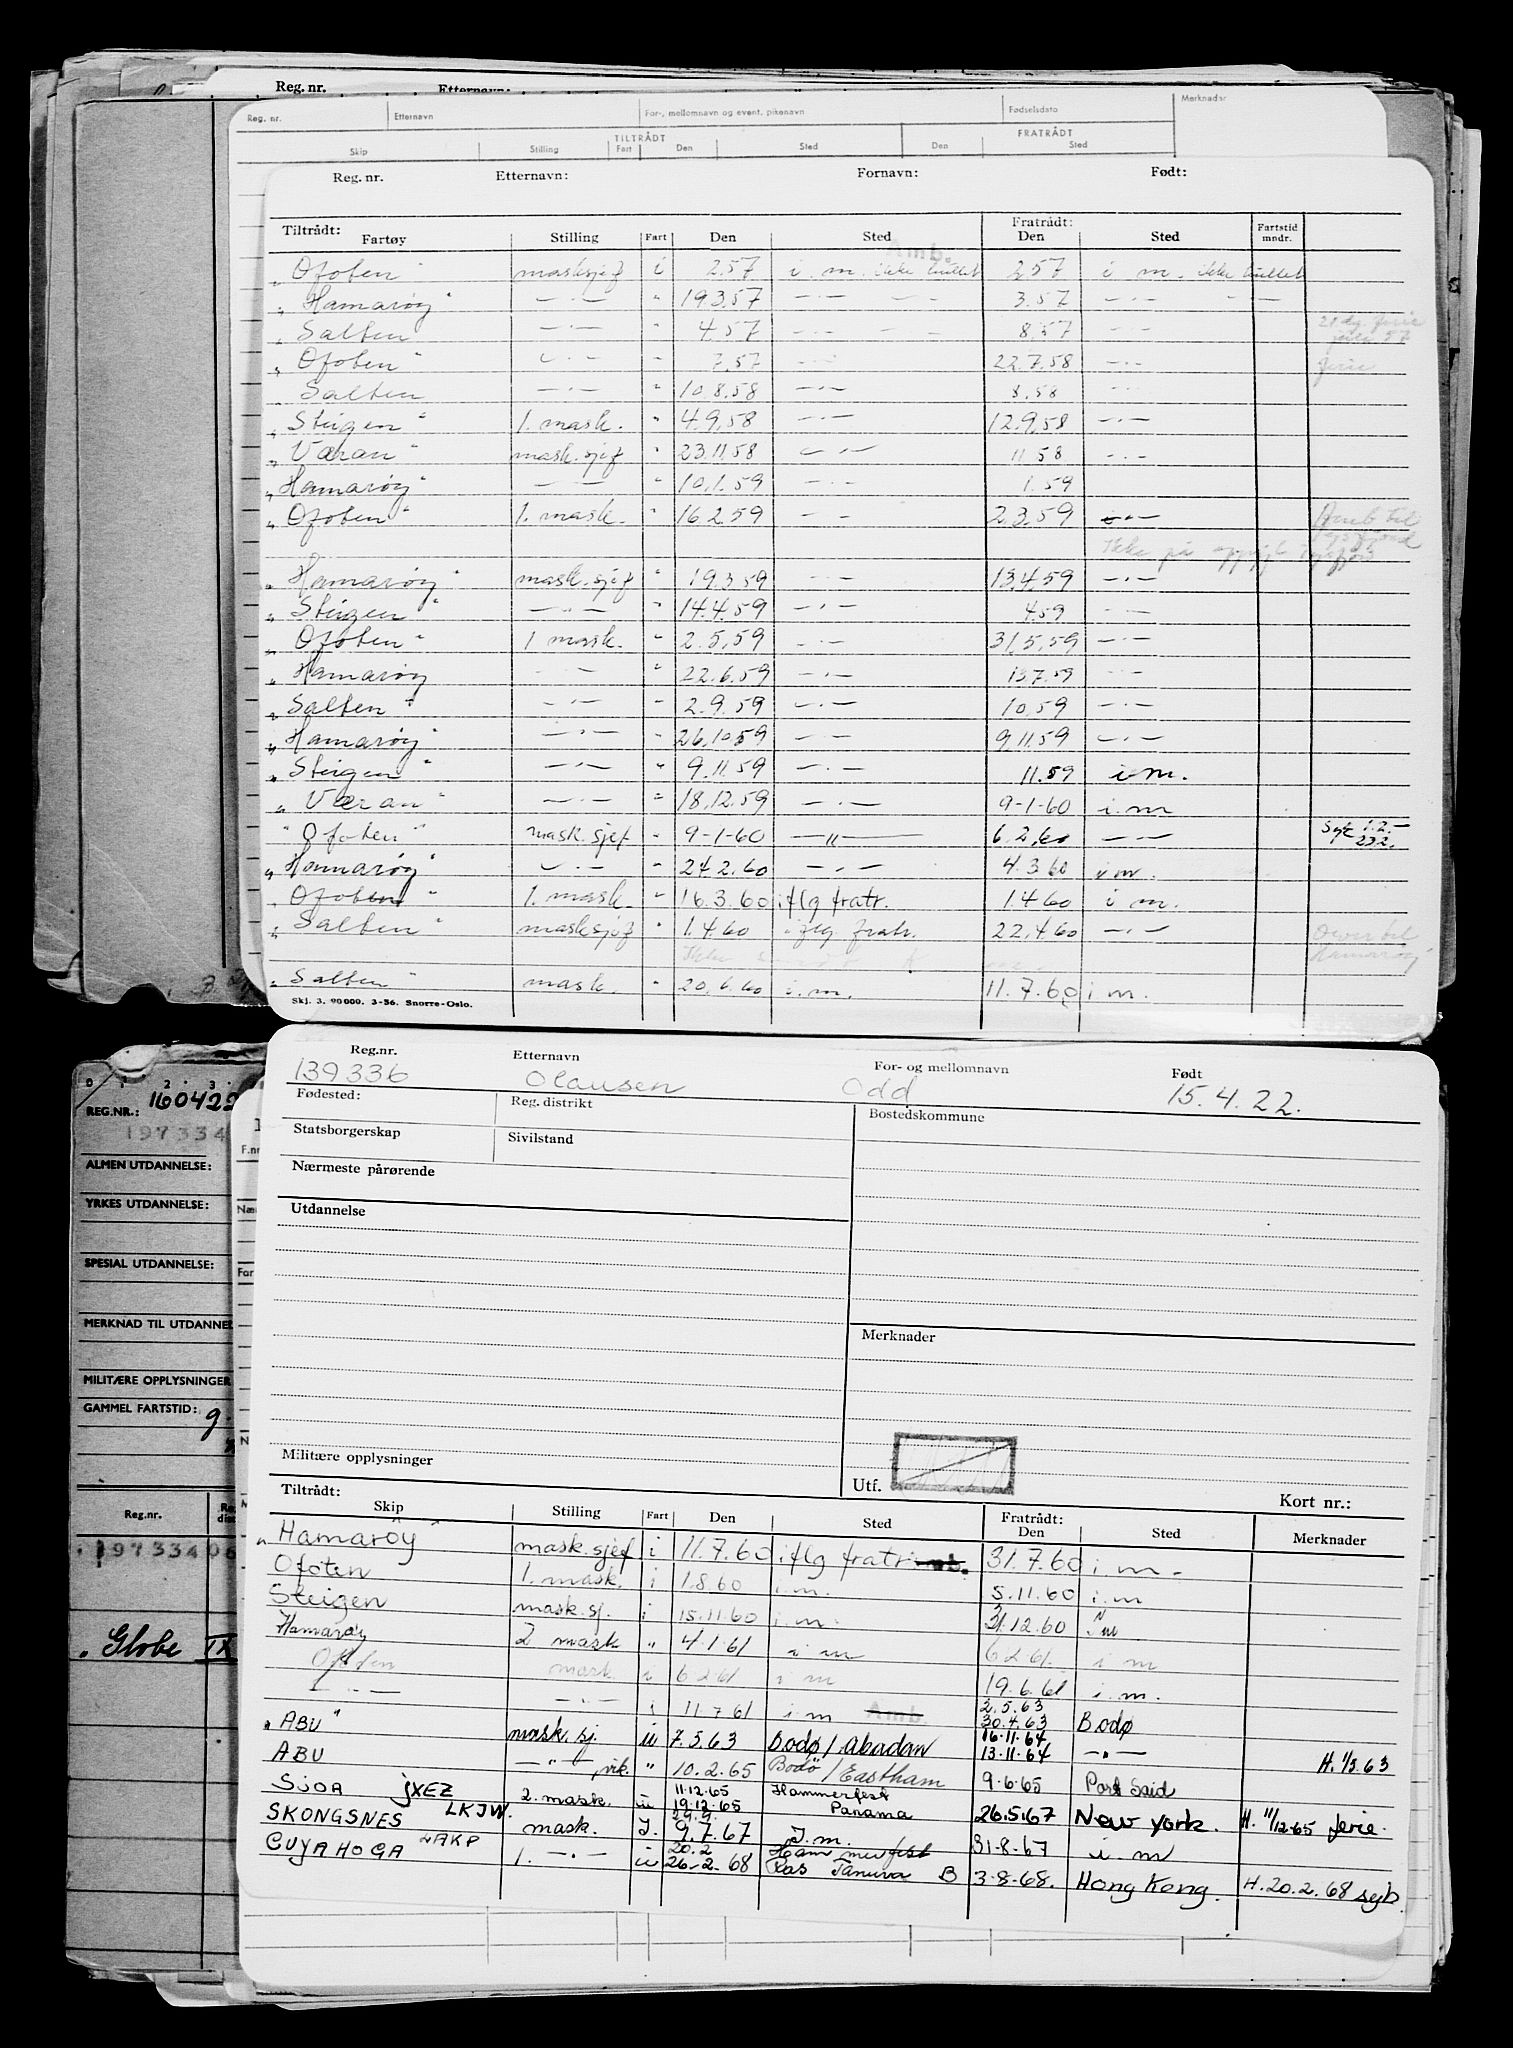 Reg. nr. Etternavn:
Reg. nr. Etternavn For-, mellomnavn og event. pikenavn Fødselsdato Merknader
TILTRÅDT FRATRÅDT
Skip Stilling Fart Den Sted Den Sted
Reg. nr. Etternavn: Fornavn: Født:
Tiltrådt: Fratrådt:
Fartøy Stilling Fart Den Sted Den Sted Fartstid mndr.
Amb.
„Ofoten" masksjef i 2.57 i. m. ikke hullet 2.57 i. m. ikke hullet
„Hamarøy" — . — " 19.3.57 — . — 3.57 — . —
„Salten" — . — " 4.57 — . — 8.57 — . — 21 dg. ferie juli 57
„Ofoten" — . — " 7.57 — . — 22.7.58 — . — ferie
„Salten — . — " 10.8.58 — . — 8.58 — . —
„Steigen" 1. mask. " 4.9.58 — . — 12.9.58 — . —
„Væran" mask. sjef " 23.11.58 — . — 11.58 — . —
„Hamarøy" — . — " 10.1.59 — . — 1.59
„Ofoten" 1. mask. " 16.2.59 — . — 2.3.59 — . — Amb til
Ikke på
„Hamarøy" mask. sjef " 19.3.59 — . — 13.4.59 — . —
„Steigen" — . — " 14.4.59 — . — 4.59 — . —
„Ofoten" 1. mask. " 2.5.59 — . — 31.5.59 — . —
„Hamarøy — . — " 22.6.59 — . — 13.7.59 — . —
„Salten" — . — " 2.9.59 — . — 10.59 — . —
„Hamarøy" — . — " 26.10.59 — . — 9.11.59 — . —
„Steigen" — . — " 9.11.59 — . — 11.59 i m.
„Væran" — . — " 18.12.59 — . — 9-1-60 i. m
"Ofoten" mask. sjef " 9-1-60 — " — 6.2.60 — . — Syk 1.2.– 23.2.
„Hamarøy" — . — " 24.2.60 — . — 4.3.60 i m.
„Ofoten" 1. mask. " 16.3.60 iflg fratr. 1.4.60 i m.
„Salten" masksjef " 1.4.60 iflg. fratr. 22.4.60 — . — Over til Hamarøy
„Salten" mask. " 20.6.60 i. m. 11.7.60 i m.
Skj. 3. 90 000. 3-56. Snorre-Oslo.
Reg.nr. Etternavn For- og mellomnavn Født
139336 Olausen Odd 15.4.22.
Fødested: Reg. distrikt Bostedskommune
Statsborgerskap Sivilstand
Nærmeste pårørende
Utdannelse
Merknader
Militære opplysninger Utf. Kort nr.:
Tiltrådt: Fratrådt:
Skip Stilling Fart Den Sted Den Sted Merknader
„Hamarøy" mask. sjef i 11.7.60 iflg fratr. Amb. 31.7.60 i m.
Ofoten 1. mask. i 1.8.60 i. m. 5.11.60 i. m
Steigen mask. sj. i 15.11.60 i m. 31.12.60 i m
Hamarøy 2 mask " 4.1.61 i m 6.2.61. i m
Ofoten mask. i 6.2.61 i m 19.6.61 i. m.
— . — — . — i 11.7.61 i m Amb. 2.5.63 30.4.63 Bodø
„ABU" mask. sj. iu 7.5.63 Bodø/Abadan 16.11.64 13.11.64 — . — H. 1/5 63
ABU — " —, vik. " 10.2.65 Bodø/Eastham 9.6.65 Port Said
SJOA JXEZ 2. mask. iu 11.12.65 19.12.65 Hammerfest Panama 26.5.67 New York. H. 11/12.65 ferie.
SKONGSNES LKJW. mask. I. 29.9. 9.7.67 I. m. 31-8-67 i. m
CUYAHOGA LAKP 1. — . — iu 20.2 26-2-68 Hammerfest Ras Tanura B 3-8-68. Hong Kong. H. 20.2.68 sejb.
0 1 2 3
REG.NR.: 160422
197334
ALMEN UTDANNELSE:
YRKES UTDANNELSE:
SPESIAL UTDANNELSE:
MERKNAD TIL UTDANNEL
MILITÆRE OPPLYSNINGER
GAMMEL FARTSTID: 9.
Reg.nr.
197334 06
„Globe IX